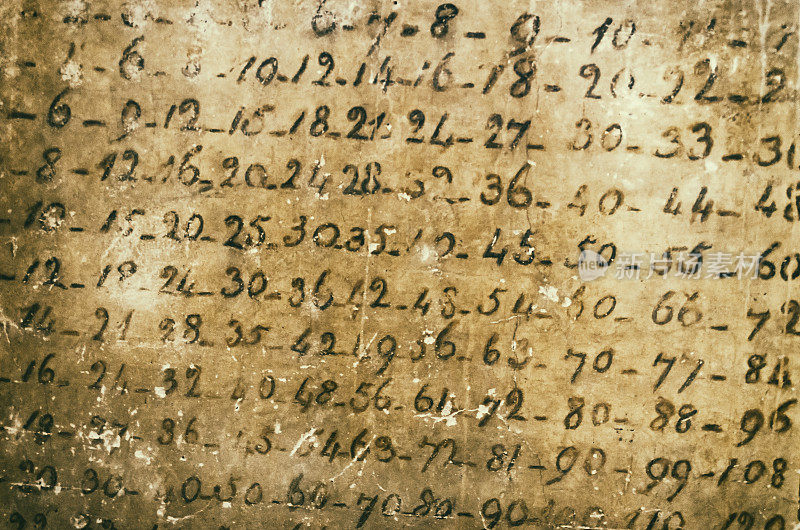 6-7-8-9-10-11-
-4-6-8-10-12-14-16-18-20-22-2
-6-9-12-15-18-21-24-27-30-33-3
-8-12-16-20-24-28-32-36-40-44-48
-10-15-20-25-30-35-40-45-50-55-60
-12-18-24-30-36-42-48-54-60-66-72
14-21-28-35-42-49-56-63-70-77-84
-16-24-32-40-48-56-64-72-80-88-96
18-27-36-45-54-63-72-81-90-99-108
-20-30-40-50-60-70-80-90-100-110-120
新图网